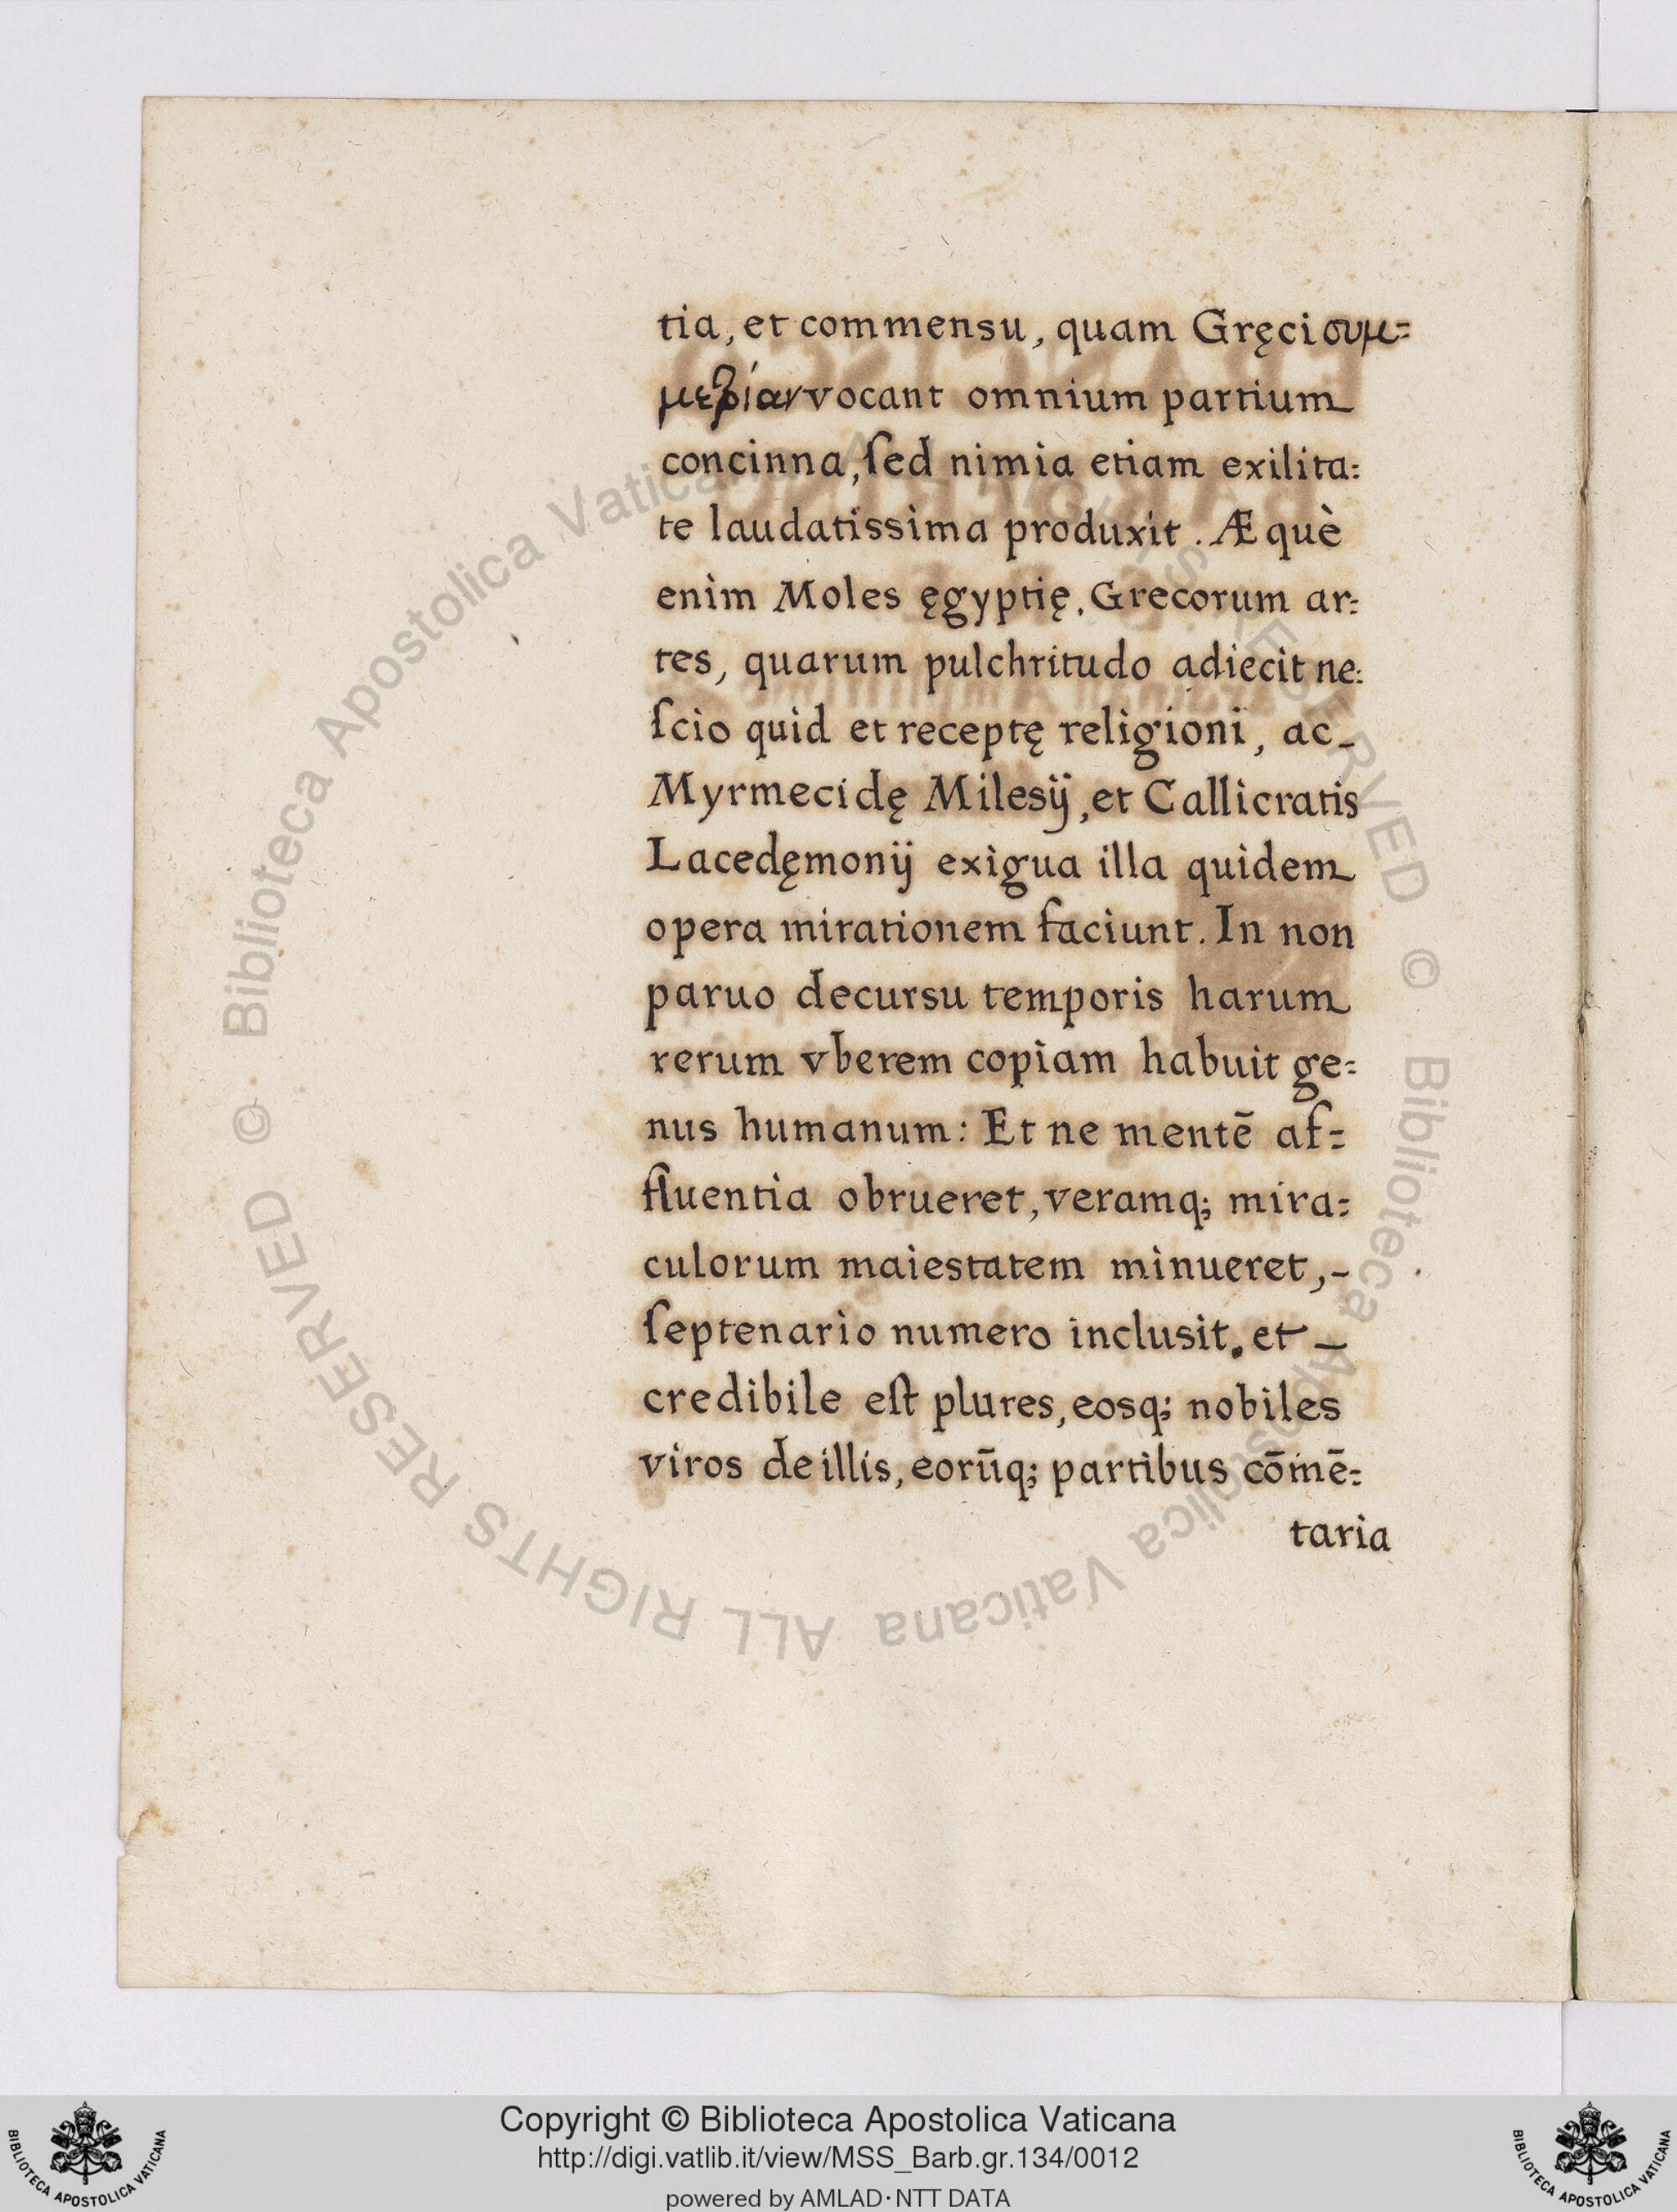 tia, et commensu, quam Gręci συμ=
μετρίαν vocant omnium partium
concinna, ſed nimia etiam exilita=
te laudatissima produxit. Æquè
enim Moles ęgyptię. Grecorum ar=
tes, quarum pulchritudo adiecit ne=
ſcio quid et receptę religioni, ac_
Myrmecidę Milesij, et Callicratis
Lacedęmonij exigua illa quidem
opera mirationem faciunt. In non
paruo decursu temporis harum
rerum vberem copiam habuit ge=
nus humanum: Et ne mentē af=
fluentia obrueret, veramq; mira=
culorum maiestatem minueret,-
ſeptenario numero inclusit. et _
credibile eſt plures, eosq; nobiles
viros de illis, eorūq; partibus cōmē=
taria
© Biblioteca Apostolica Vaticana ALL RIGHTS RESERVED
© Biblioteca Apostolica Vaticana ALL RIGHTS RESERVED
Copyright © Biblioteca Apostolica Vaticana
http://digi.vatlib.it/view/MSS_Barb.gr.134/0012
powered by AMLAD·NTT DATA
BIBLIOTECA APOSTOLICA VATICANA
BIBLIOTECA APOSTOLICA VATICANA